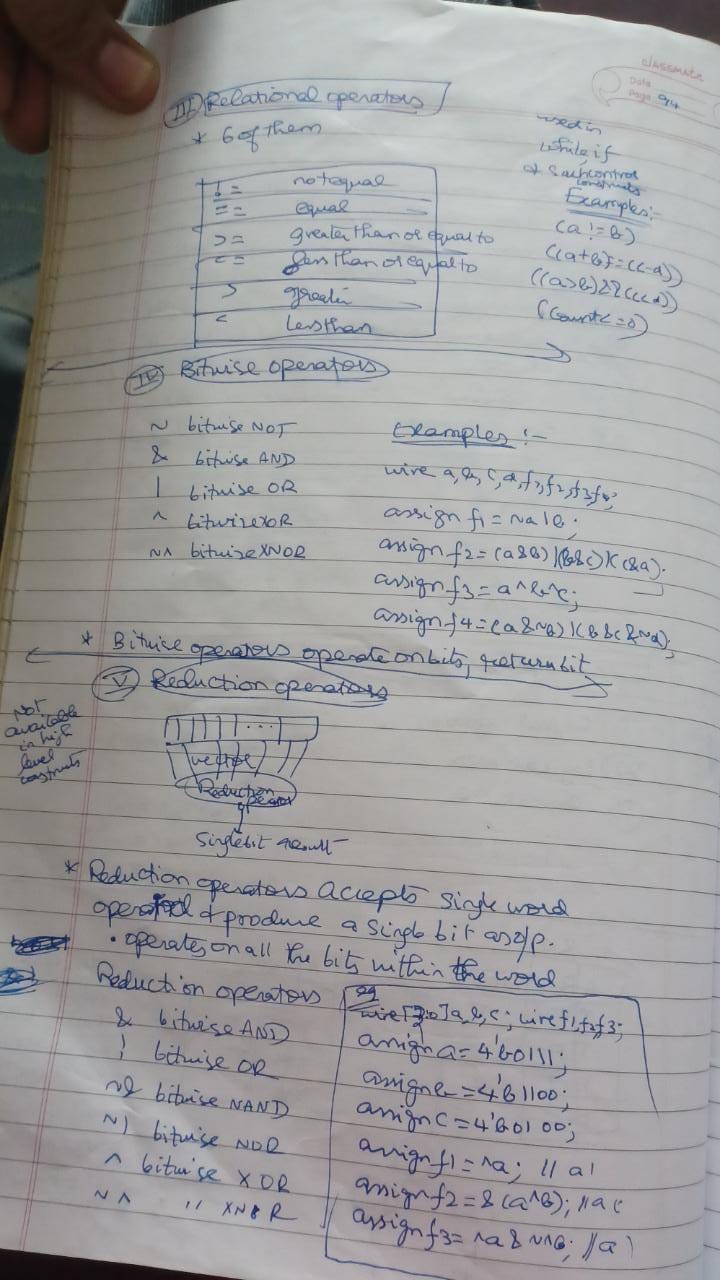 classmate
Date
Page 94
III) Relational operators
* 6 of them
!= not equal
== equal
>= greater than or equal to
<= less than or equal to
> greater
< Less than
used in
while, if
& such control
constructs
Examples:-
(a != b)
((a+b)==(c-d))
((a>b)&&(c<d))
(count<=0)
IV Bitwise operators
~ bitwise NOT
& bitwise AND
| bitwise OR
^ bitwise XOR
~^ bitwise XNOR
Examples :-
wire a, b, c, d, f1, f2, f3, f4;
assign f1 = ~a | b;
assign f2 = (a&b) | (b&c) | (c&a);
assign f3 = a^b^c;
assign f4 = (a&~b) | (b&c&~d);
* Bitwise operators operate on bits, & return bit
V Reduction operators
Not
available
in high
level
constructs
vector
Reduction
operator
Single bit result
* Reduction operators accepts single word
operand & produce a single bit as o/p.
• operates on all the bits within the word
Reduction operators
& bitwise AND
| bitwise OR
~& bitwise NAND
~| bitwise NOR
^ bitwise XOR
~^ " XNOR
eg
wire[3:0]a,b,c; wire f1,f2,f3;
assign a = 4'b0111;
assign b = 4'b1100;
assign c = 4'b0100;
assign f1 = ^a; //
assign f2 = &(a^b); //
assign f3 = ^a & ~^b; //